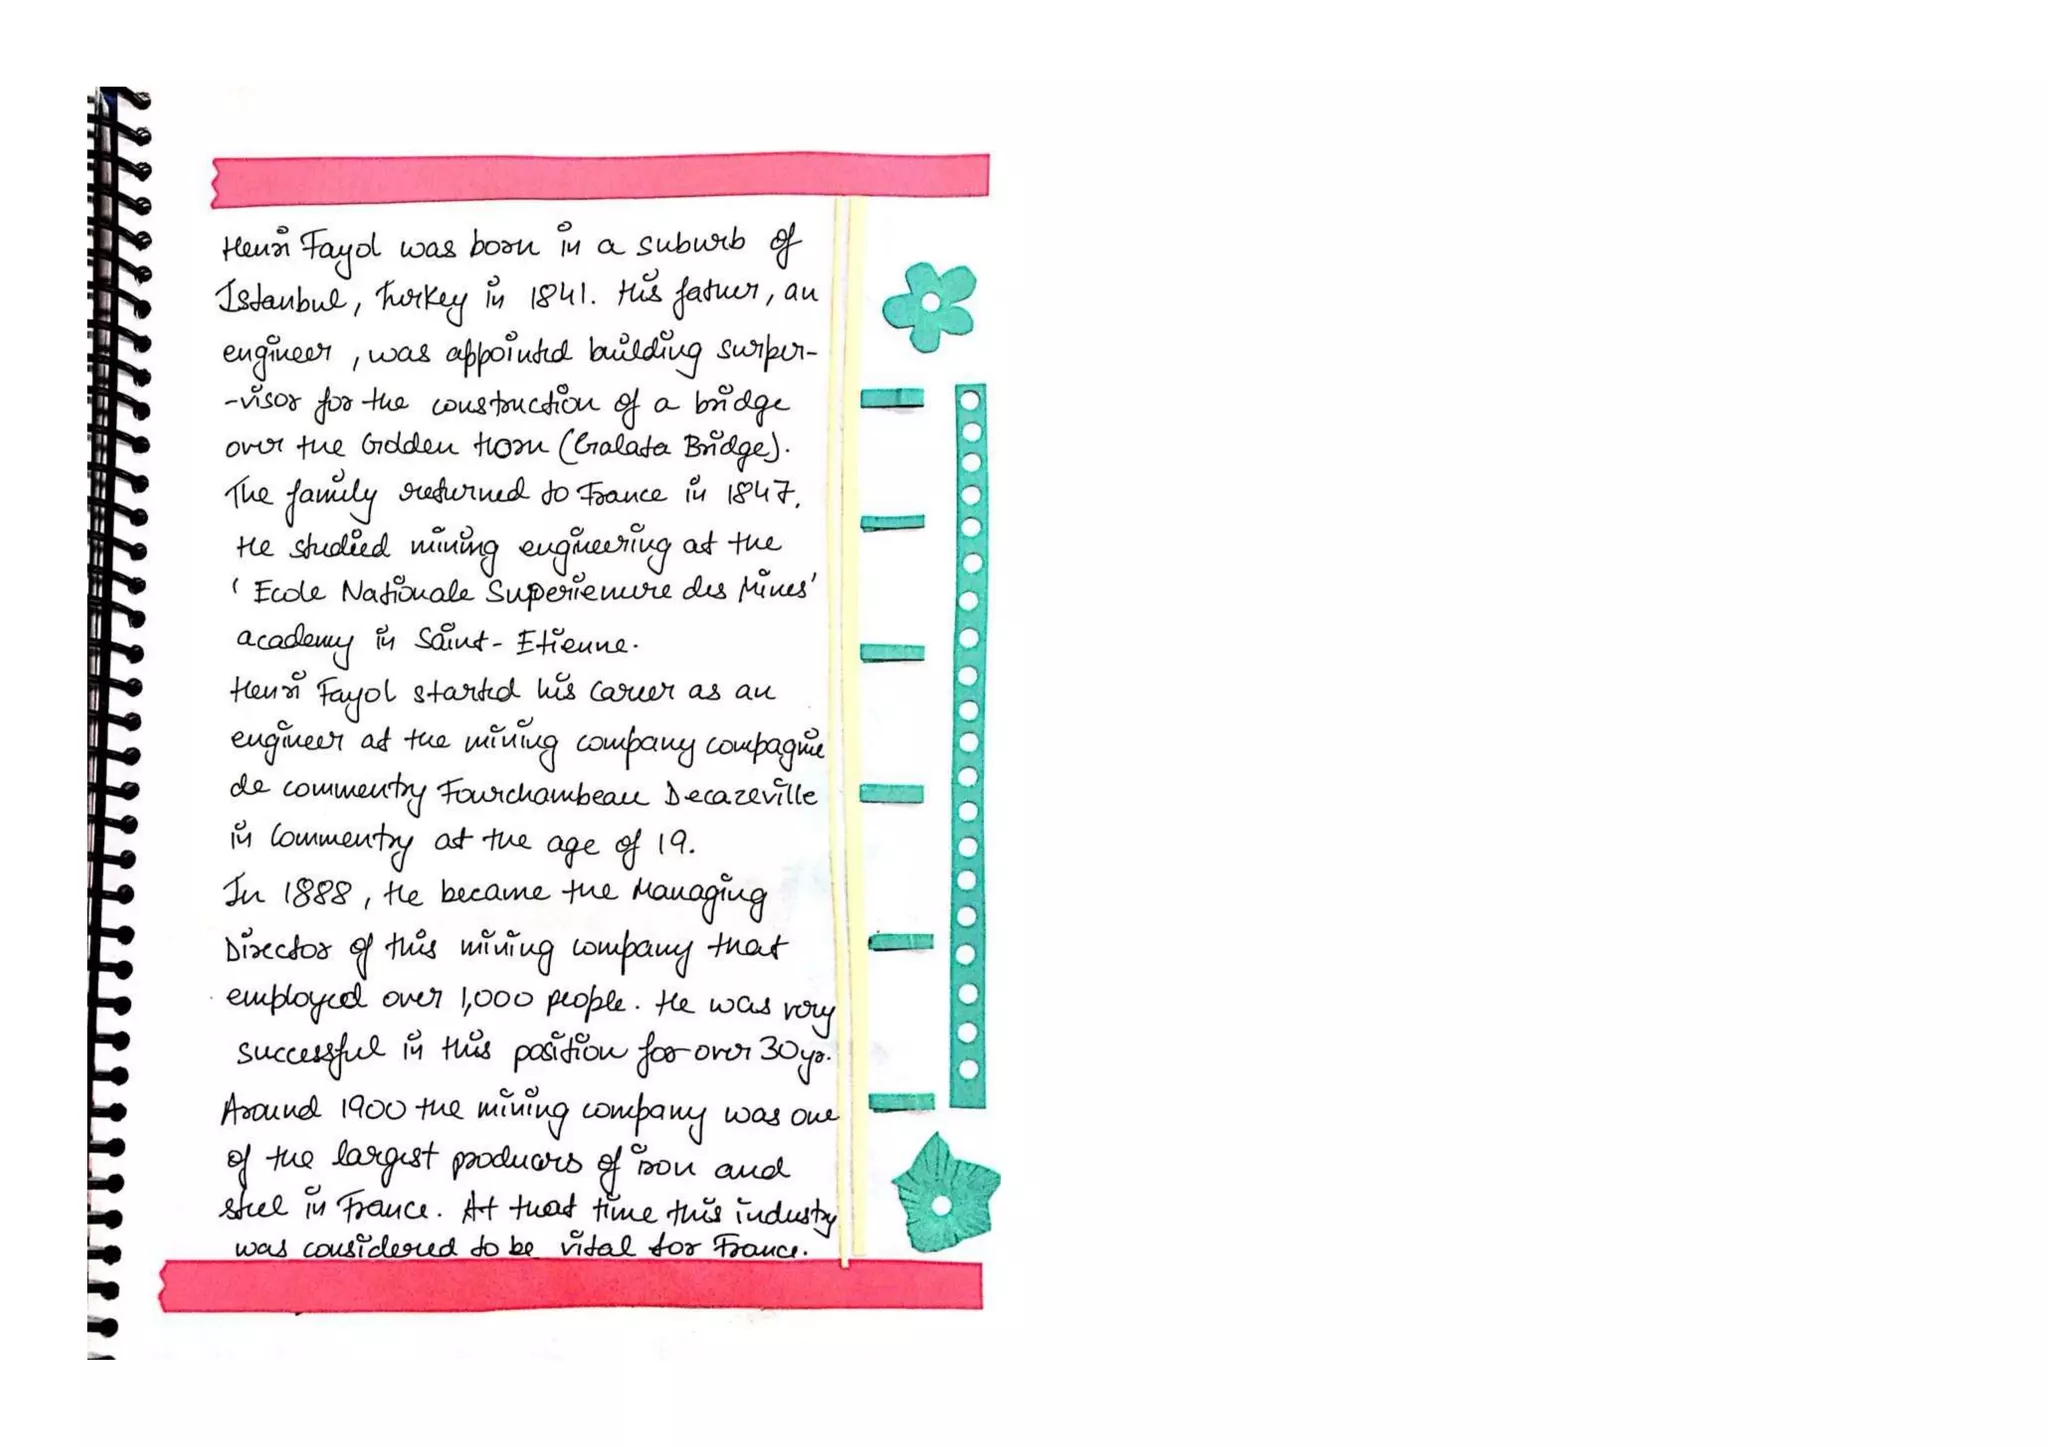 Henri Fayol was born in a suburb of
Istanbul, Turkey in 1841. His father, an
engineer, was appointed building surper-
-visor for the construction of a bridge
over the Golden Horn (Galata Bridge).
The family returned to France in 1847.
He studied mining engineering at the
'Ecole Nationale Superiemure des Mines'
academy in Saint-Etienne.
Henri Fayol started his career as an
engineer at the mining company compagnie
de commentry Fourchambeau Decazeville
in Commentry at the age of 19.
In 1888, He became the Managing
Director of this mining company that
employed over 1,000 people. He was very
successful in this position for over 30yr.
Around 1900 the mining company was one
of the largest producers of iron and
steel in France. At that time this industry
was considered to be vital for France.